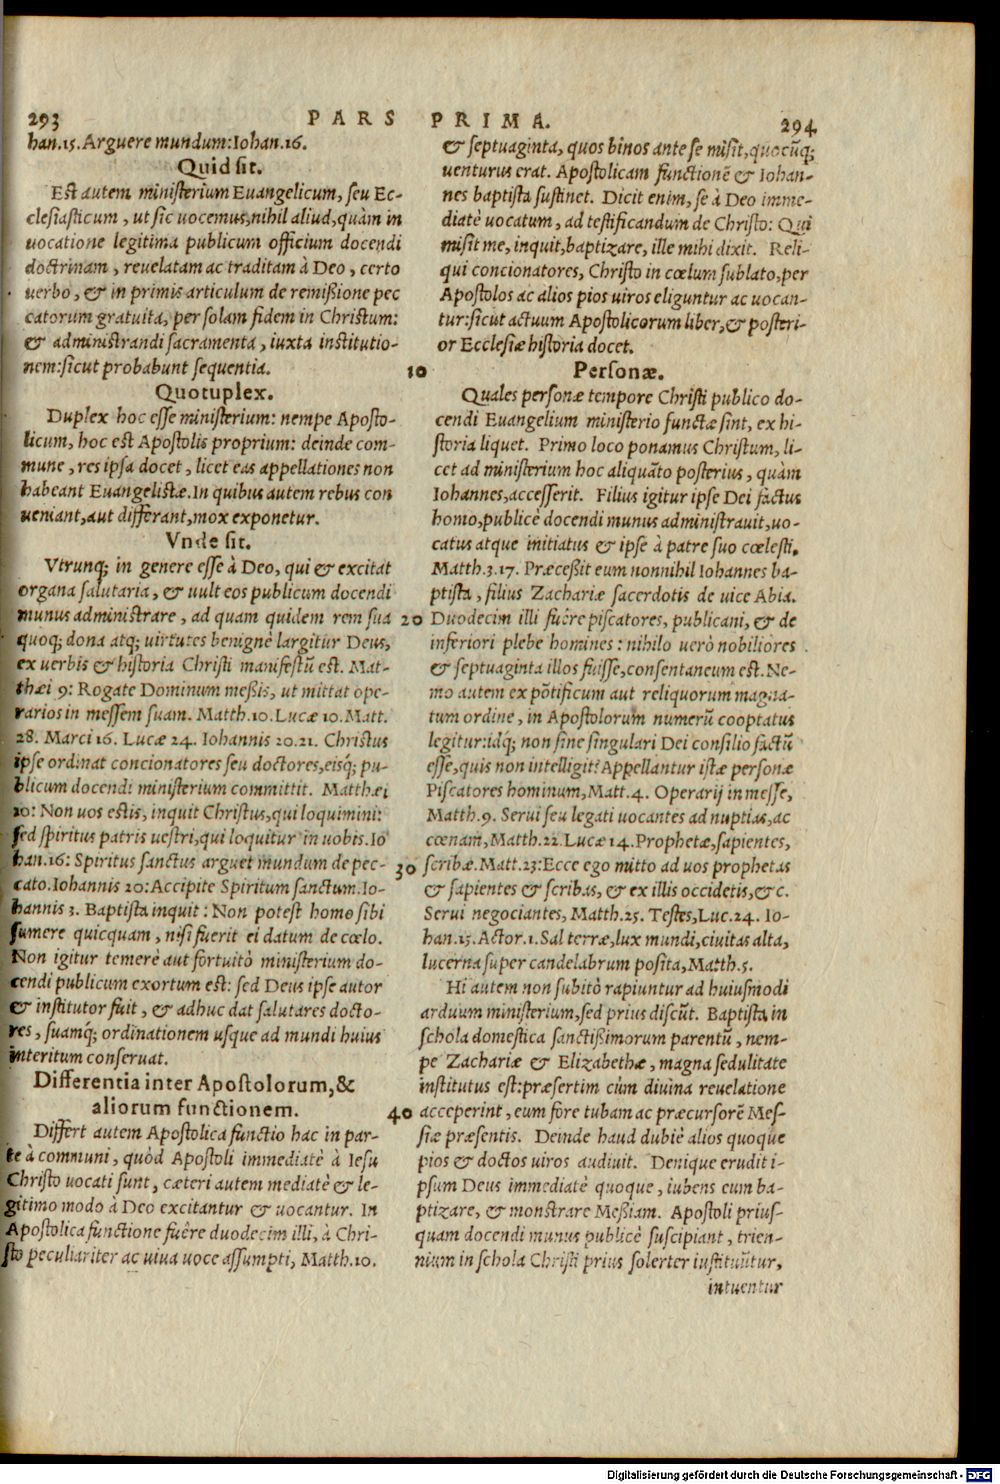 293 PARS PRIMA. 294
han.15. Arguere mundum: Iohan.16.
Quid sit.
Est autem ministerium Euangelicum, seu Ec-
clesiasticum, ut sic uocemus, nihil aliud, quàm in
uocatione legitima publicum officium docendi
doctrinam, reuelatam ac traditam à Deo, certo
uerbo, & in primis articulum de remißione pec
catorum gratuita, per solam fidem in Christum:
& administrandi sacramenta, iuxta institutio-
nem: sicut probabunt sequentia.
Quotuplex.
Duplex hoc esse ministerium: nempe Aposto-
licum, hoc est Apostolis proprium: deinde com-
mune, res ipsa docet, licet eas appellationes non
habeant Euangelistæ. In quibus autem rebus con
ueniant, aut differant, mox exponetur.
Vnde sit.
Vtrunq; in genere esse à Deo, qui & excitat
organa salutaria, & uult eos publicum docendi
munus administrare, ad quam quidem rem sua
quoq; dona atq; uirtutes benignè largitur Deus,
ex uerbis & historia Christi manifestũ est. Mat-
thæi 9: Rogate Dominum meßis, ut mittat ope-
rarios in messem suam. Matth.10. Lucæ 10. Matt.
28. Marci 16. Lucæ 24. Iohannis 20.21. Christus
ipse ordinat concionatores seu doctores, eisq; pu-
blicum docendi ministerium committit. Matthæi
10: Non uos estis, inquit Christus, qui loquimini:
sed spiritus patris uestri, qui loquitur in uobis. Io
han.16: Spiritus sanctus arguet mundum de pec-
cato. Iohannis 20: Accipite Spiritum sanctum. Io-
hannis 3. Baptista inquit: Non potest homo sibi
sumere quicquam, nisi fuerit ei datum de cœlo.
Non igitur temerè aut fortuitò ministerium do-
cendi publicum exortum est: sed Deus ipse autor
& institutor fuit, & adhuc dat salutares docto-
res, suamq́; ordinationem usque ad mundi huius
interitum conseruat.
Differentia inter Apostolorum, &
aliorum functionem.
Differt autem Apostolica functio hac in par-
te à communi, quòd Apostoli immediatè à Iesu
Christo uocati sunt, cæteri autem mediatè & le-
gitimo modo à Deo excitantur & uocantur. In
Apostolica functione fuêre duodecim illi, à Chri-
sto peculiariter ac uiua uoce assumpti, Matth.10.
& septuaginta, quos binos ante se misit, quocũq;
uenturus erat. Apostolicam functionẽ & Iohan-
nes baptista sustinet. Dicit enim, se à Deo imme-
diatè uocatum, ad testificandum de Christo: Qui
misit me, inquit, baptizare, ille mihi dixit. Reli-
qui concionatores, Christo in cœlum sublato, per
Apostolos ac alios pios uiros eliguntur ac uocan-
tur: sicut actuum Apostolicorum liber, & posteri-
or Ecclesiæ historia docet.
10 Personæ.
Quales personæ tempore Christi publico do-
cendi Euangelium ministerio functæ sint, ex hi-
storia liquet. Primo loco ponamus Christum, li-
cet ad ministerium hoc aliquãto posterius, quàm
Iohannes, accesserit. Filius igitur ipse Dei factus
homo, publicè docendi munus administrauit, uo-
catus atque initiatus & ipse à patre suo cœlesti.
Matth.3.17. Præceßit eum nonnihil Iohannes ba-
ptista, filius Zachariæ sacerdotis de uice Abia.
20 Duodecim illi fuêre piscatores, publicani, & de
inferiori plebe homines: nihilo uerò nobiliores
& septuaginta illos fuisse, consentaneum est. Ne-
mo autem ex põtificum aut reliquorum magna-
tum ordine, in Apostolorum numerũ cooptatus
legitur: idq́; non sine singulari Dei consilio factũ
esse, quis non intelligit? Appellantur istæ personæ
Piscatores hominum, Matt.4. Operarij in messe,
Matth.9. Serui seu legati uocantes ad nuptias, ac
cœnam, Matth.22. Lucæ 14. Prophetæ, sapientes,
30 scribæ. Matt.23: Ecce ego mitto ad uos prophetas
& sapientes & scribas, & ex illis occidetis, & c.
Serui negociantes, Matth.25. Testes, Luc.24. Io-
han.15. Actor.1. Sal terræ, lux mundi, ciuitas alta,
lucerna super candelabrum posita, Matth.5.
Hi autem non subitò rapiuntur ad huiusmodi
arduum ministerium, sed prius discũt. Baptista in
schola domestica sanctißimorum parentũ, nem-
pe Zachariæ & Elizabethæ, magna sedulitate
institutus est: præsertim cùm diuina reuelatione
40 acceperint, eum fore tubam ac præcursorẽ Mes-
siæ præsentis. Deinde haud dubiè alios quoque
pios & doctos uiros audiuit. Denique erudit i-
psum Deus immediatè quoque, iubens eum ba-
ptizare, & monstrare Meßiam. Apostoli prius-
quam docendi munus publicè suscipiant, trien-
nium in schola Christi prius solerter instituũtur,
intuentur
Digitalisierung gefördert durch die Deutsche Forschungsgemeinschaft - DFG